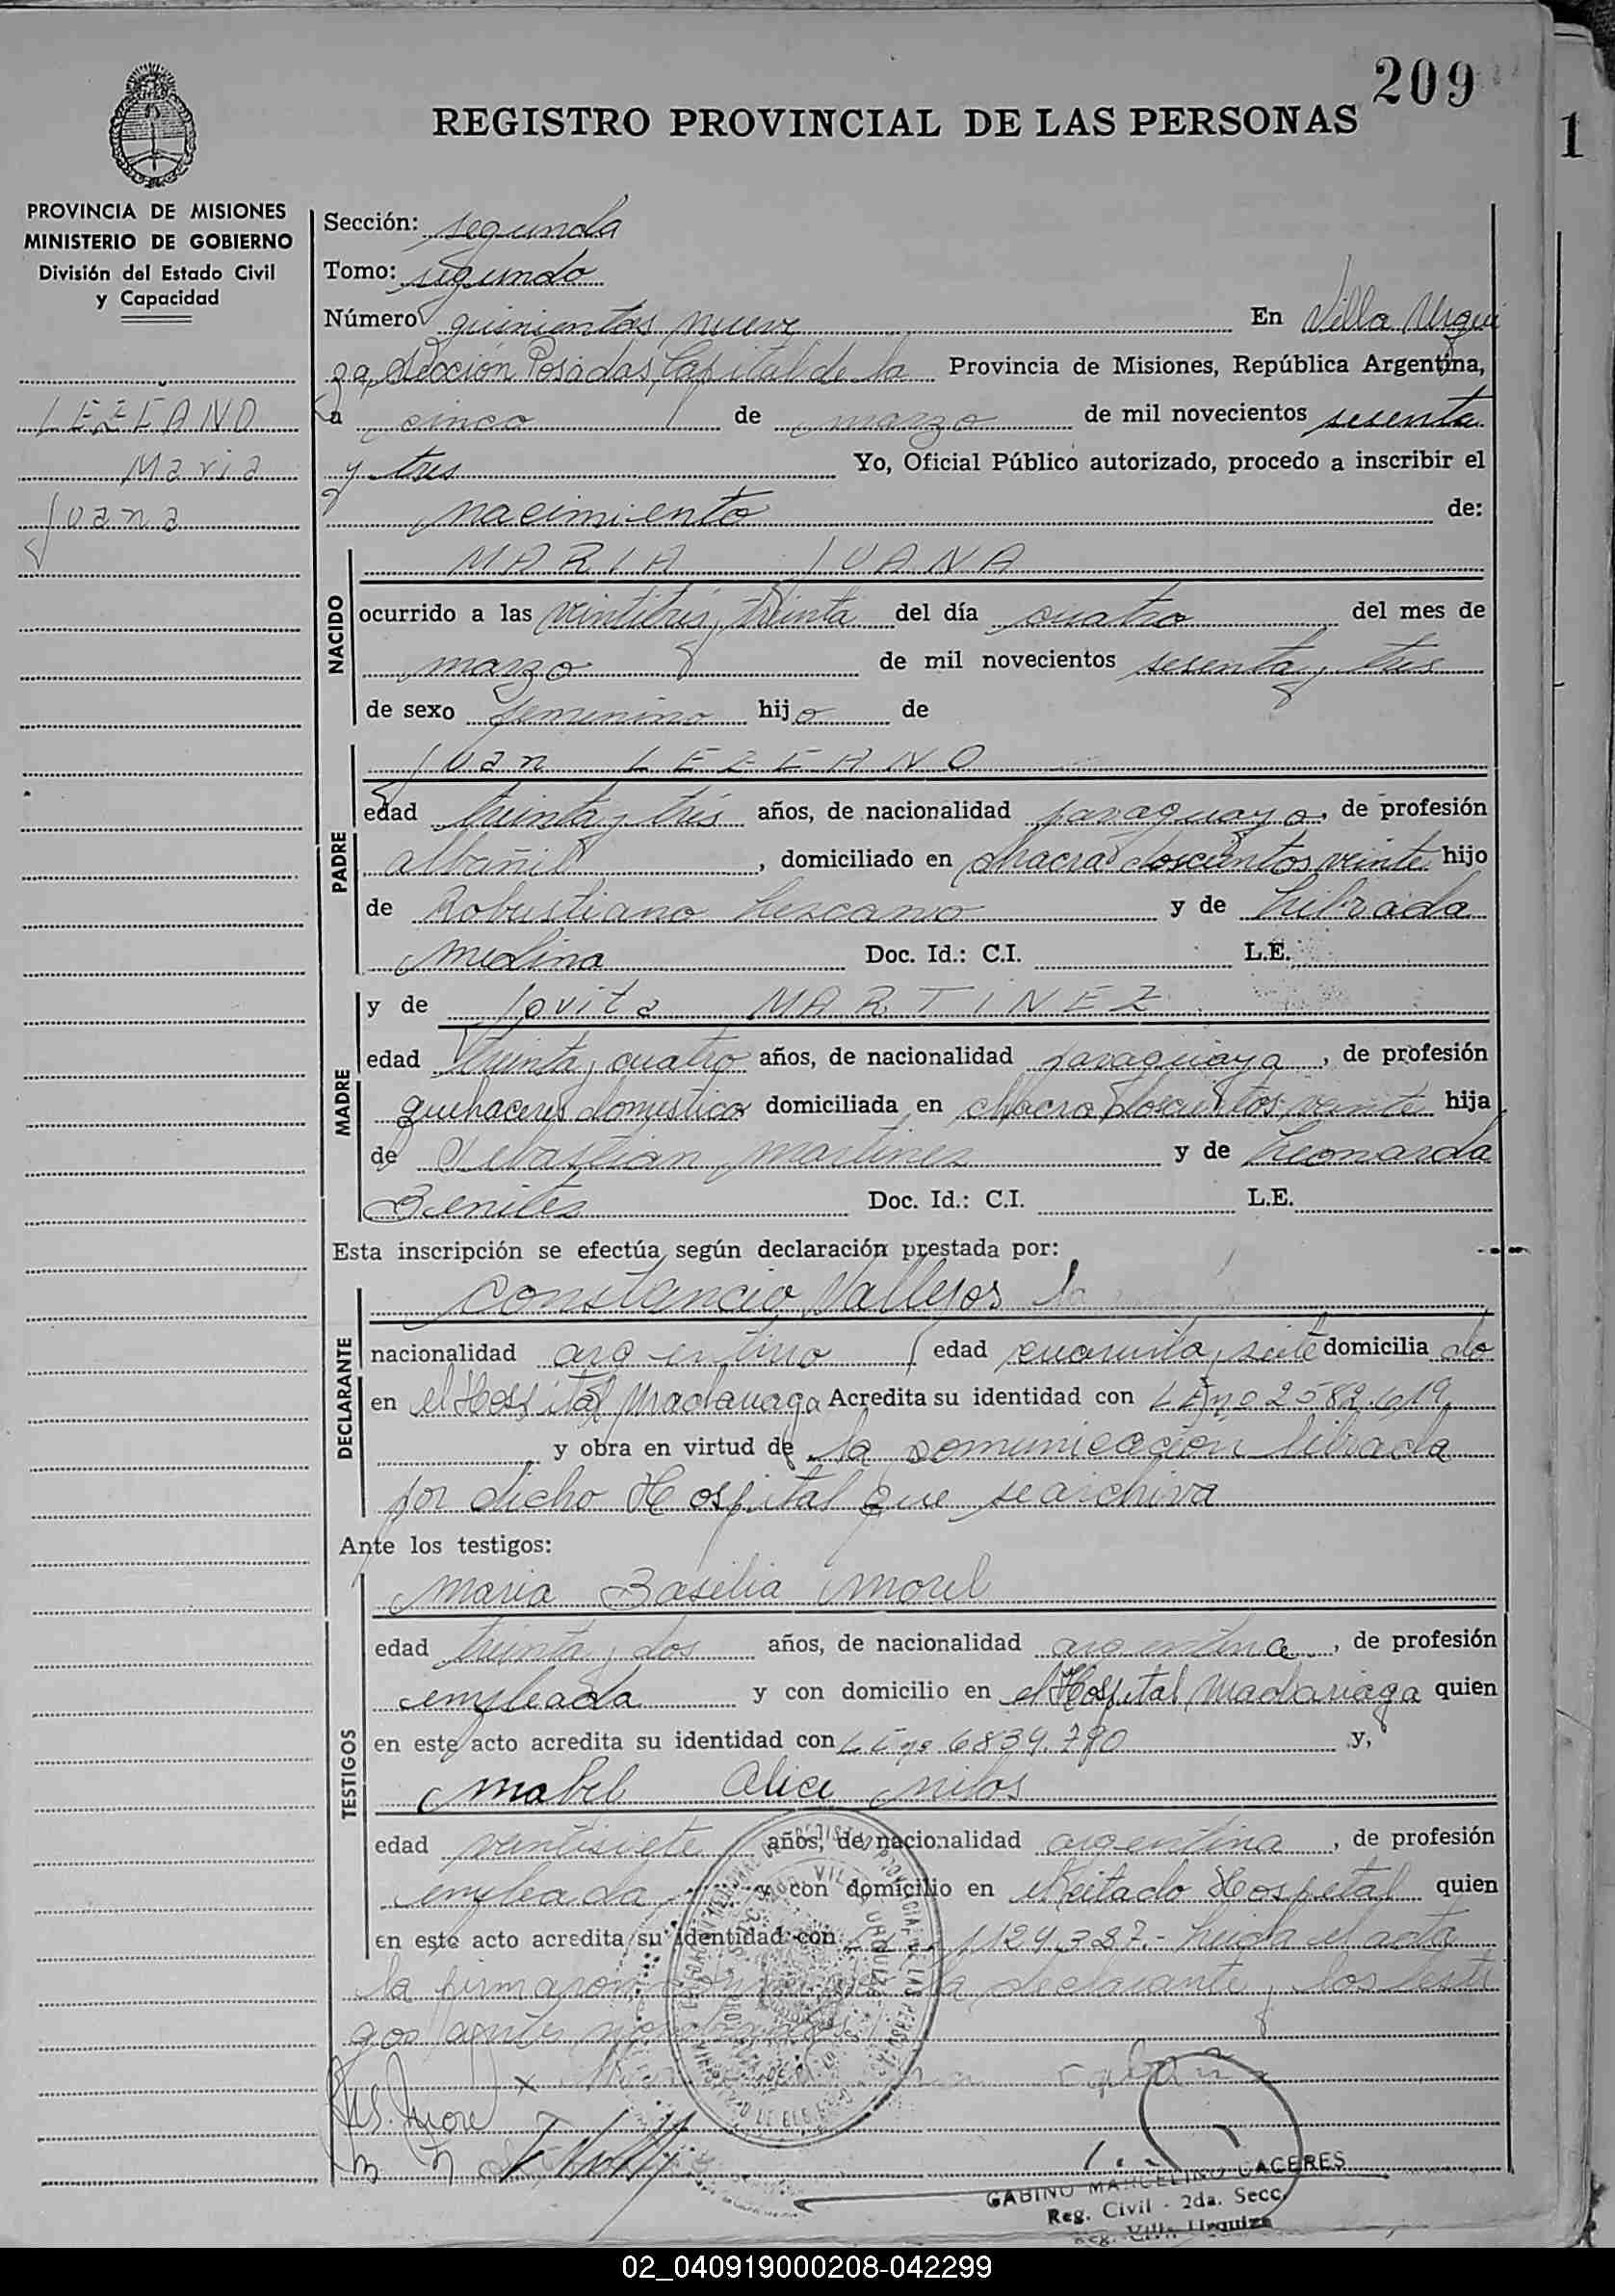 209
REGISTRO PROVINCIAL DE LAS PERSONAS
1
PROVINCIA DE MISIONES
MINISTERIO DE GOBIERNO
División del Estado Civil
y Capacidad
LEZCANO
Maria
Juana
Sección: segunda
Tomo: segundo
Número quinientos nueve En Villa Urqui
za, Sección Posadas, Capital de la Provincia de Misiones, República Argentina,
a cinco de marzo de mil novecientos sesenta
y tres Yo, Oficial Público autorizado, procedo a inscribir el
nacimiento de:
NACIDO
MARIA JUANA
ocurrido a las veintitrés y treinta del día cuatro del mes de
marzo de mil novecientos sesenta y tres
de sexo femenino hijo de
PADRE
Juan LEZCANO
edad treinta y tres años, de nacionalidad paraguayo, de profesión
albañil, domiciliado en chacra doscientos veinte hijo
de Robustiano Lezcano y de Librada
Medina Doc. Id.: C.I. L.E.
MADRE
y de Jovita MARTINEZ
edad treinta y cuatro años, de nacionalidad paraguaya, de profesión
quehaceres domesticos domiciliada en chacra doscientos veinte hija
de Sebastian Martinez y de Leonarda
Benitez Doc. Id.: C.I. L.E.
Esta inscripción se efectúa según declaración prestada por:
DECLARANTE
Constancio Vallejos
nacionalidad argentino edad cuarenta y siete domiciliado
en el Hospital Madariaga Acredita su identidad con L.E. nº 2582.619
y obra en virtud de la comunicación librada
por dicho Hospital que se archiva
Ante los testigos:
TESTIGOS
Maria Basilia Morel
edad treinta y dos años, de nacionalidad argentina, de profesión
empleada y con domicilio en el Hospital Madariaga quien
en este acto acredita su identidad con nº 6839.790 y,
Mabel Alice Milos
edad veintisiete años, de nacionalidad argentina, de profesión
empleada y con domicilio en el citado Hospital quien
en este acto acredita su identidad con 1124.387.- Leida el acta
la firmaron declarante y los testi
gos
GABINO MARCELINO CACERES
Reg. Civil - 2da. Secc.
Reg. Villa Urquiza
02_040919000208-042299